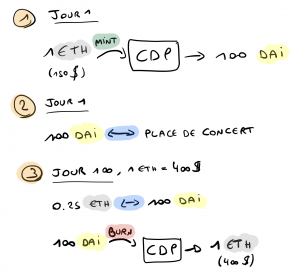 1 JOUR 1
1 ETH MINT CDP → 100 DAI
(150$)
2 JOUR 1
100 DAI ↔ PLACE DE CONCERT
3 JOUR 100, 1 ETH = 400$
0.25 ETH ↔ 100 DAI
100 DAI BURN CDP → 1 ETH
(400$)